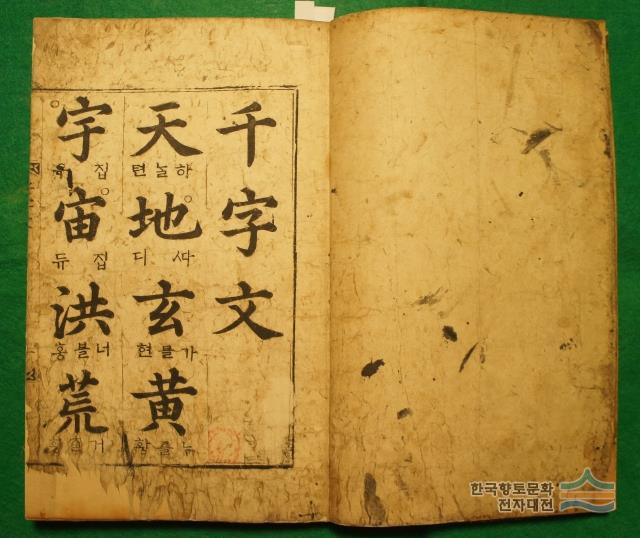 千字文
天 하늘텬
地 ᄯᅡ디
玄 가믈현
黃 누를황
宇 집우
宙 집듀
洪 너블홍
荒 거츨황
한국향토문화
전자대전